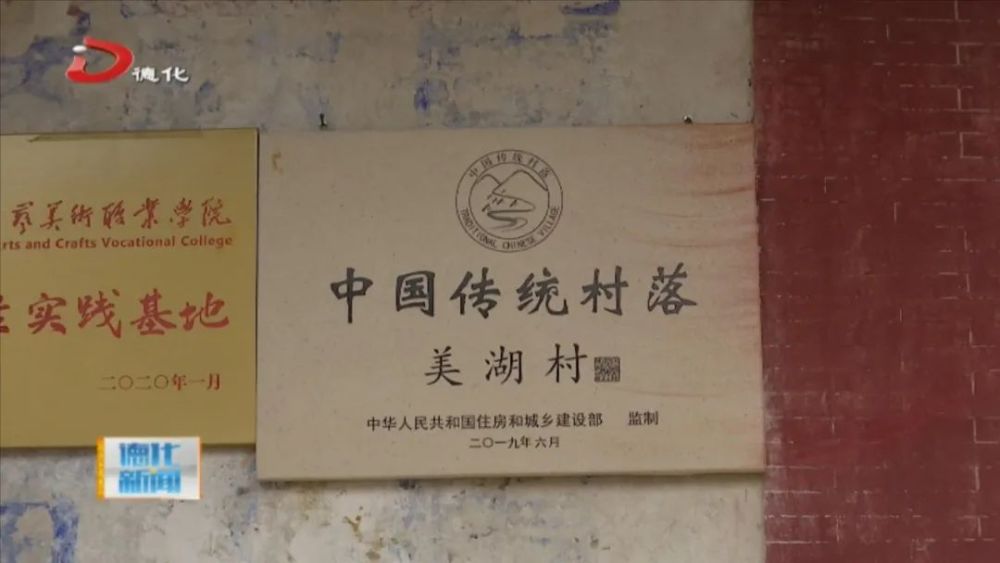 德化
艺美術职業学院
rts and Crafts Vocational College
实践基地
二〇二〇年一月
中国传统村落
TRADITIONAL CHINESE VILLAGE
中国传统村落
美湖村
中华人民共和国住房和城乡建设部 监制
二〇一九年六月
德化
新闻